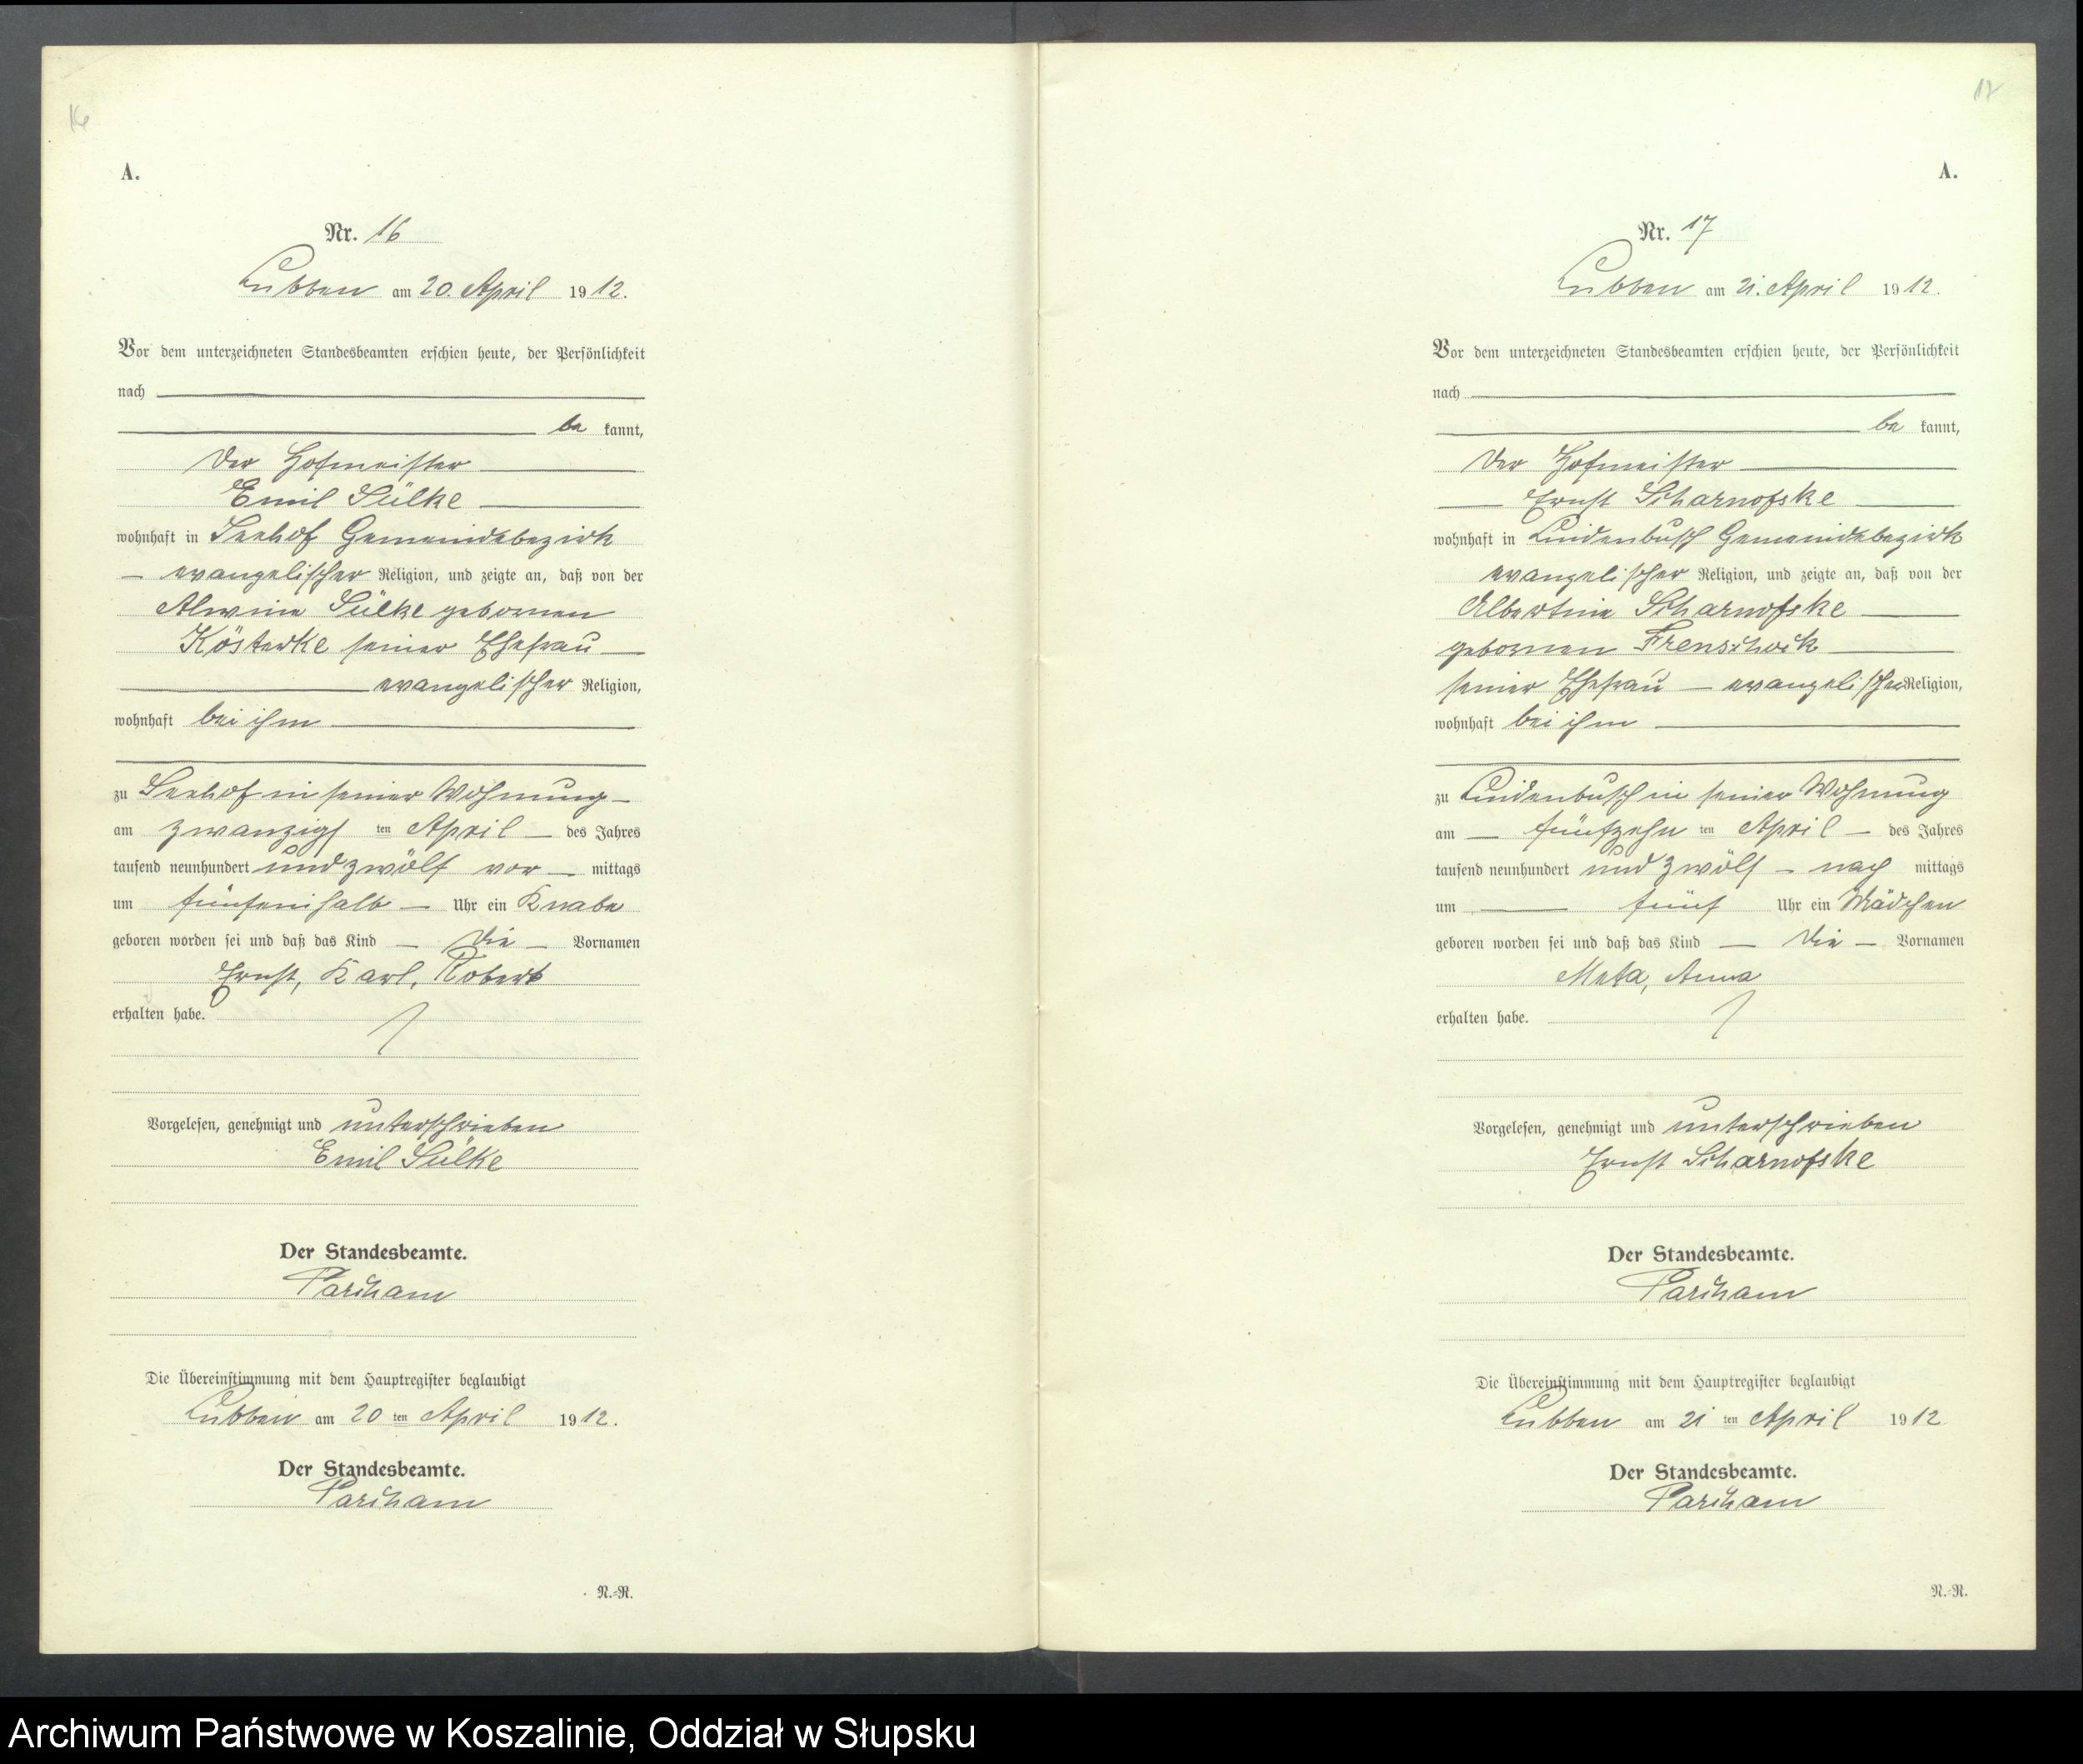 16
A.
Nr. 16
Lubben am 20. April 1912.
Vor dem unterzeichneten Standesbeamten erschien heute, der Persönlichkeit
nach
be kannt,
der Hofmeister
Emil Sülke
wohnhaft in Seehof Gemeindebezirk
evangelischer Religion, und zeigte an, daß von der
Alwine Sülke gebornen
Kösterke seiner Ehefrau
evangelischer Religion,
wohnhaft bei ihm
zu Seehof in seiner Wohnung
am zwanzigs ten April des Jahres
tausend neunhundert und zwölf vor mittags
um fünfeinhalb Uhr ein Knabe
geboren worden sei und daß das Kind die Vornamen
Ernst, Karl, Robert
erhalten habe.
Vorgelesen, genehmigt und unterschrieben
Emil Sülke
Der Standesbeamte.
Parcham
Die Übereinstimmung mit dem Hauptregister beglaubigt
Lubben am 20 ten April 1912.
Der Standesbeamte.
Parcham
N.-R.
17
A.
Nr. 17
Lubben am 21. April 1912.
Vor dem unterzeichneten Standesbeamten erschien heute, der Persönlichkeit
nach
be kannt,
der Hofmeister
Ernst Scharnofske
wohnhaft in Lindenbusch Gemeindebezirk
evangelischer Religion, und zeigte an, daß von der
Albertine Scharnofske
gebornen Frenschock
seiner Ehefrau evangelischer Religion,
wohnhaft bei ihm
zu Lindenbusch in seiner Wohnung
am fünfzehn ten April des Jahres
tausend neunhundert und zwölf nach mittags
um fünf Uhr ein Mädchen
geboren worden sei und daß das Kind die Vornamen
Meta, Anna
erhalten habe.
Vorgelesen, genehmigt und unterschrieben
Ernst Scharnofske
Der Standesbeamte.
Parcham
Die Übereinstimmung mit dem Hauptregister beglaubigt
Lubben am 21 ten April 1912
Der Standesbeamte.
Parcham
N.-R.
Archiwum Państwowe w Koszalinie, Oddział w Słupsku